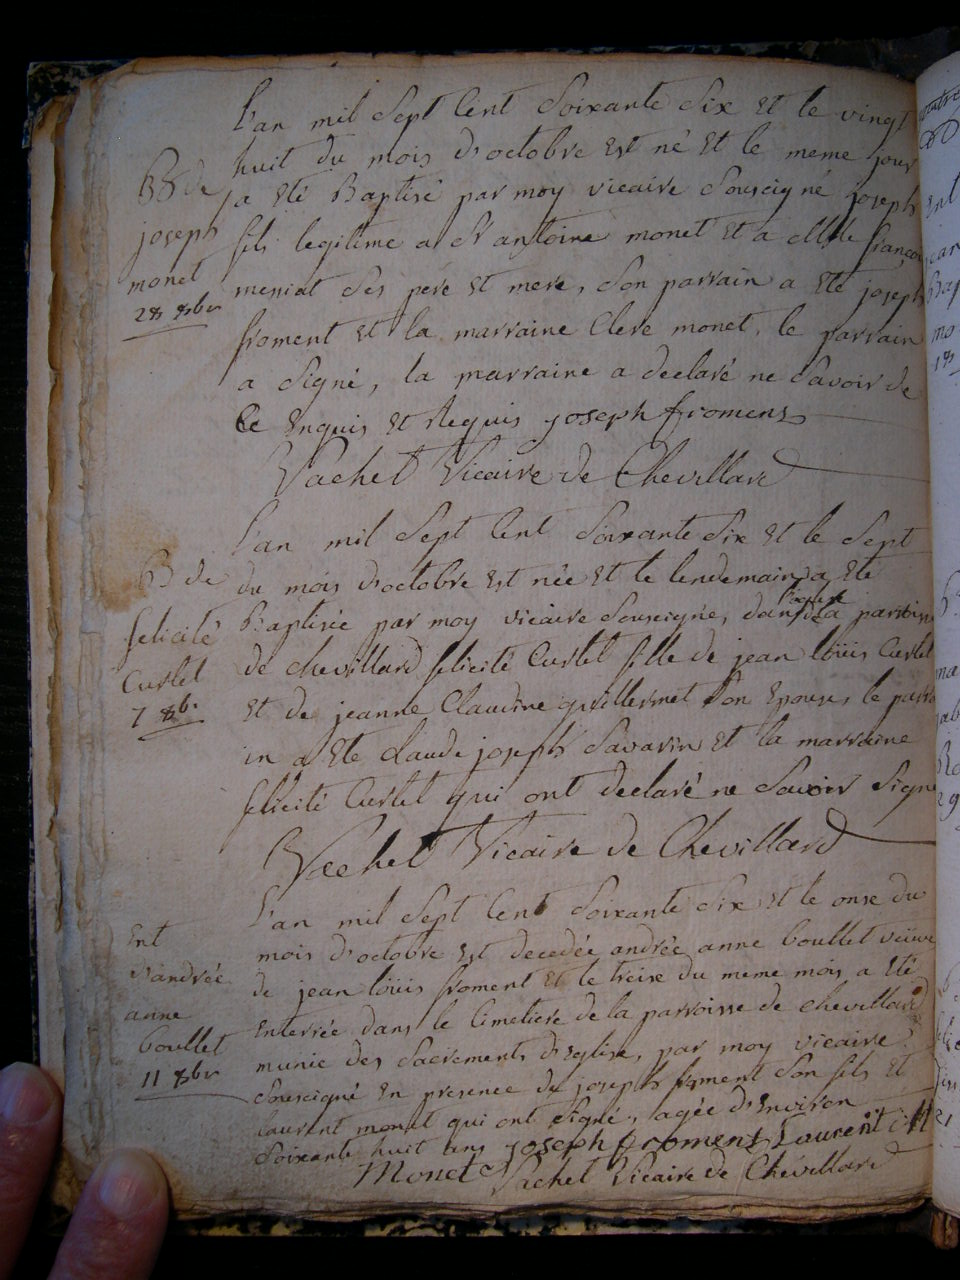 L'an mil Sept Cent Soixante Six Et le vingt
huit du mois d'octobre Est né Et le meme jour
a Eté Baptisé par moy vicaire Souscigné joseph
fils legitime a Sr antoine monet Et a françoi
meniat Ses pere Et mere, Son parrain a Eté joseph
froment Et la marraine Clere monet, le parrain
a Signé, la marraine a declaré ne Savoir de
Ce Enquis Et Requis joseph froment
Vachet Vicaire de Chevillard
B de
joseph
monet
28 8bre
L'an mil Sept Cent Soixante Six Et le Sept
du mois d'octobre Est née Et le lendemain a Eté
Baptisée par moy vicaire Souscigné, dans la paroiss
de Chevillard felicité Curlet fille de jean loüis Curlet
Et de jeanne Claudine guillermet Son Epouse, le parra
in a Eté Claude joseph Savarin Et la marraine
felicité Curlet qui ont declaré ne Savoir Signe
Vachet Vicaire de Chevillard
B de
felicité
Curlet
7 8b.
L'an mil Sept Cent Soixante Six Et le onse du
mois d'octobre Est decedée andrée anne boullet veüve
de jean loüis froment Et le treise du meme mois a Eté
Enterrée dans le Cimetiere de la parroisse de Chevillard
munie des Sacrements d'Eglise, par moy vicaire
Souscigné En presence de joseph froment Son fils Et
laurent monet qui ont Signé, agée d'Environ
Soixante huit ans joseph froment Laurent M
Monet Vachet Vicaire de Chevillard
Ent
d'andrée
anne
boullet
11 8bre